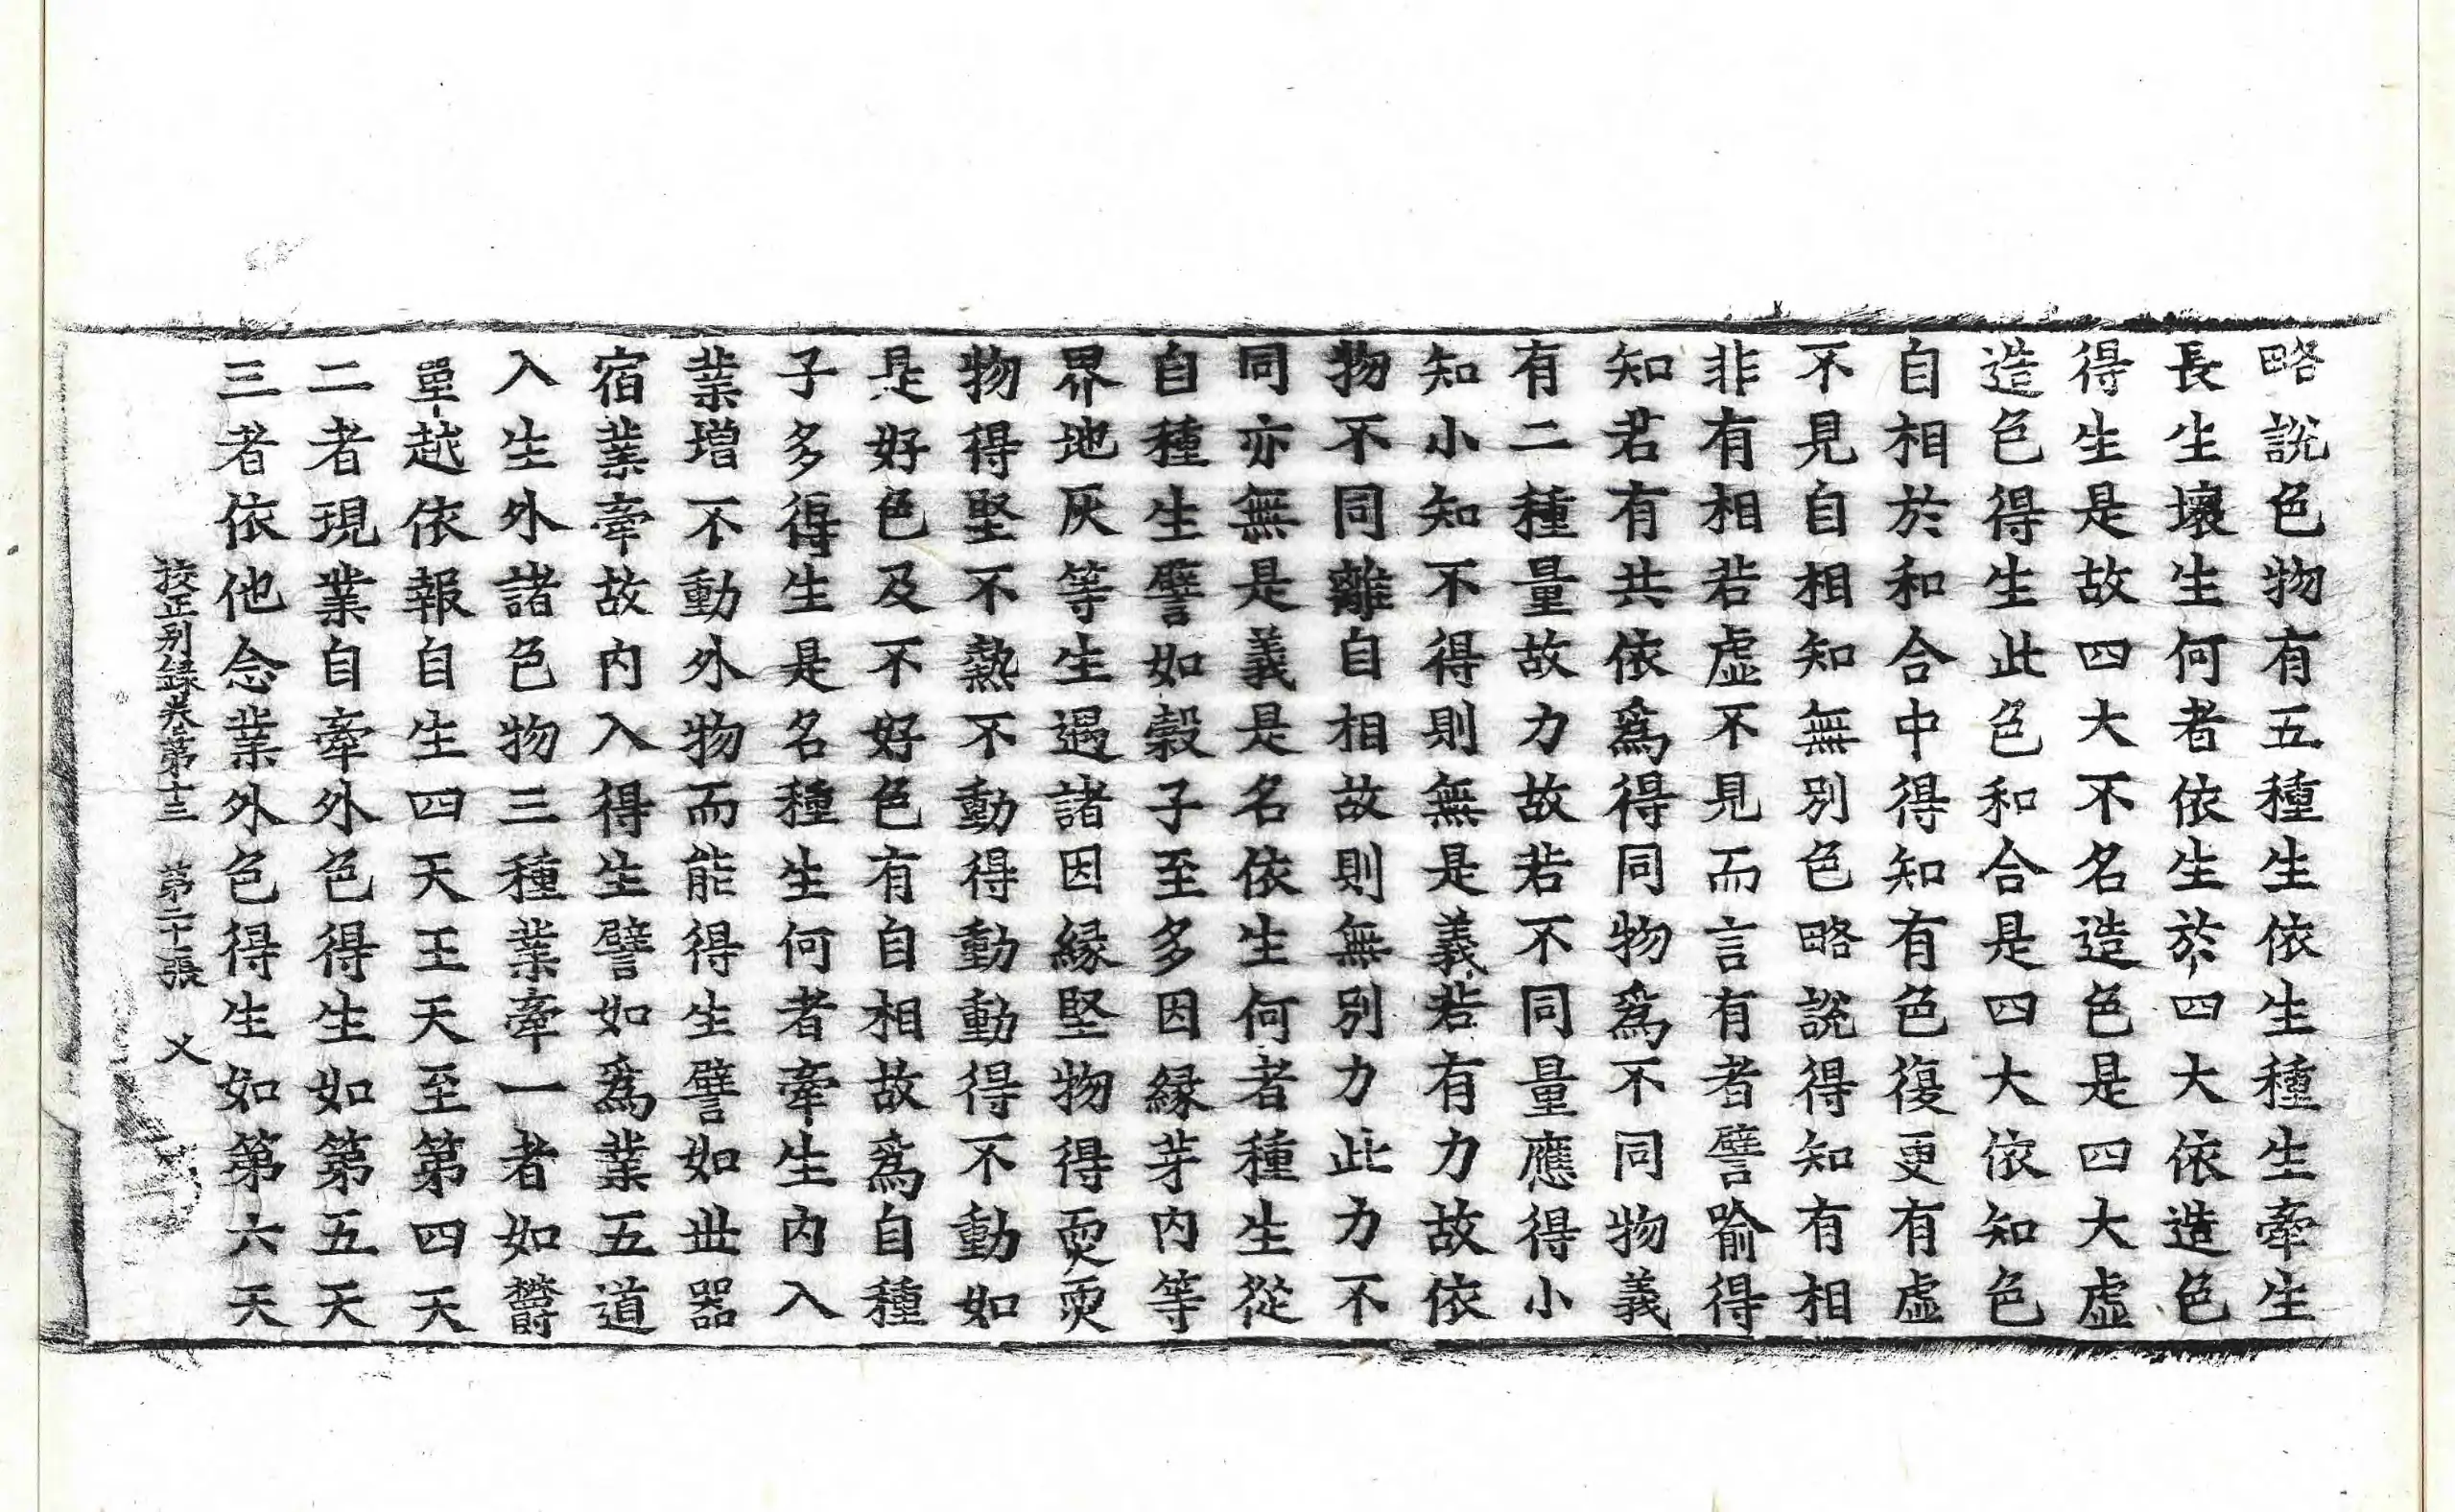 略說色物有五種生依生種生牽生
長生壞生何者依生於四大依造色
得生是故四大不名造色是四大虛
造色得生此色和合是四大依知色
自相於和合中得知有色復更有虛
不見自相知無別色略說得知有相
非有相若虛不見而言有者譬喻得
知若有共依爲得同物爲不同物義
有二種量故力故若不同量應得小
知小知不得則無是義若有力故依
物不同離自相故則無別力此力不
同亦無是義是名依生何者種生從
自種生譬如穀子至多因緣芽內等
界地灰等生遇諸因緣堅物得耎耎
物得堅不熱不動得動動得不動如
是好色及不好色有自相故爲自種
子多得生是名種生何者牽生內入
業增不動外物而能得生譬如世器
宿業牽故內入得生譬如爲業五道
入生外諸色物三種業牽一者如欝
單越依報自生四天王天至第四天
二者現業自牽外色得生如第五天
三者依他念業外色得生如第六天
校正別錄卷第十三 第二十張 义